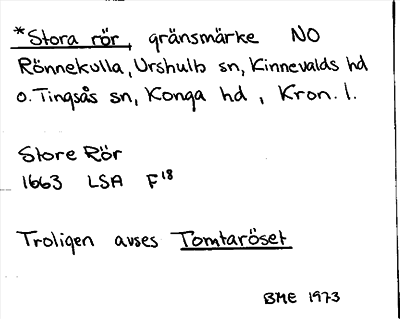 *Stora rör, gränsmärke NO
Rönnekulla, Urshulb sn, Kinnevalds hd
o. Tingsås sn, Konga hd, Kron. l.
Store Rör
1663 LSA F18
Troligen avses Tomtaröset
BME 1973